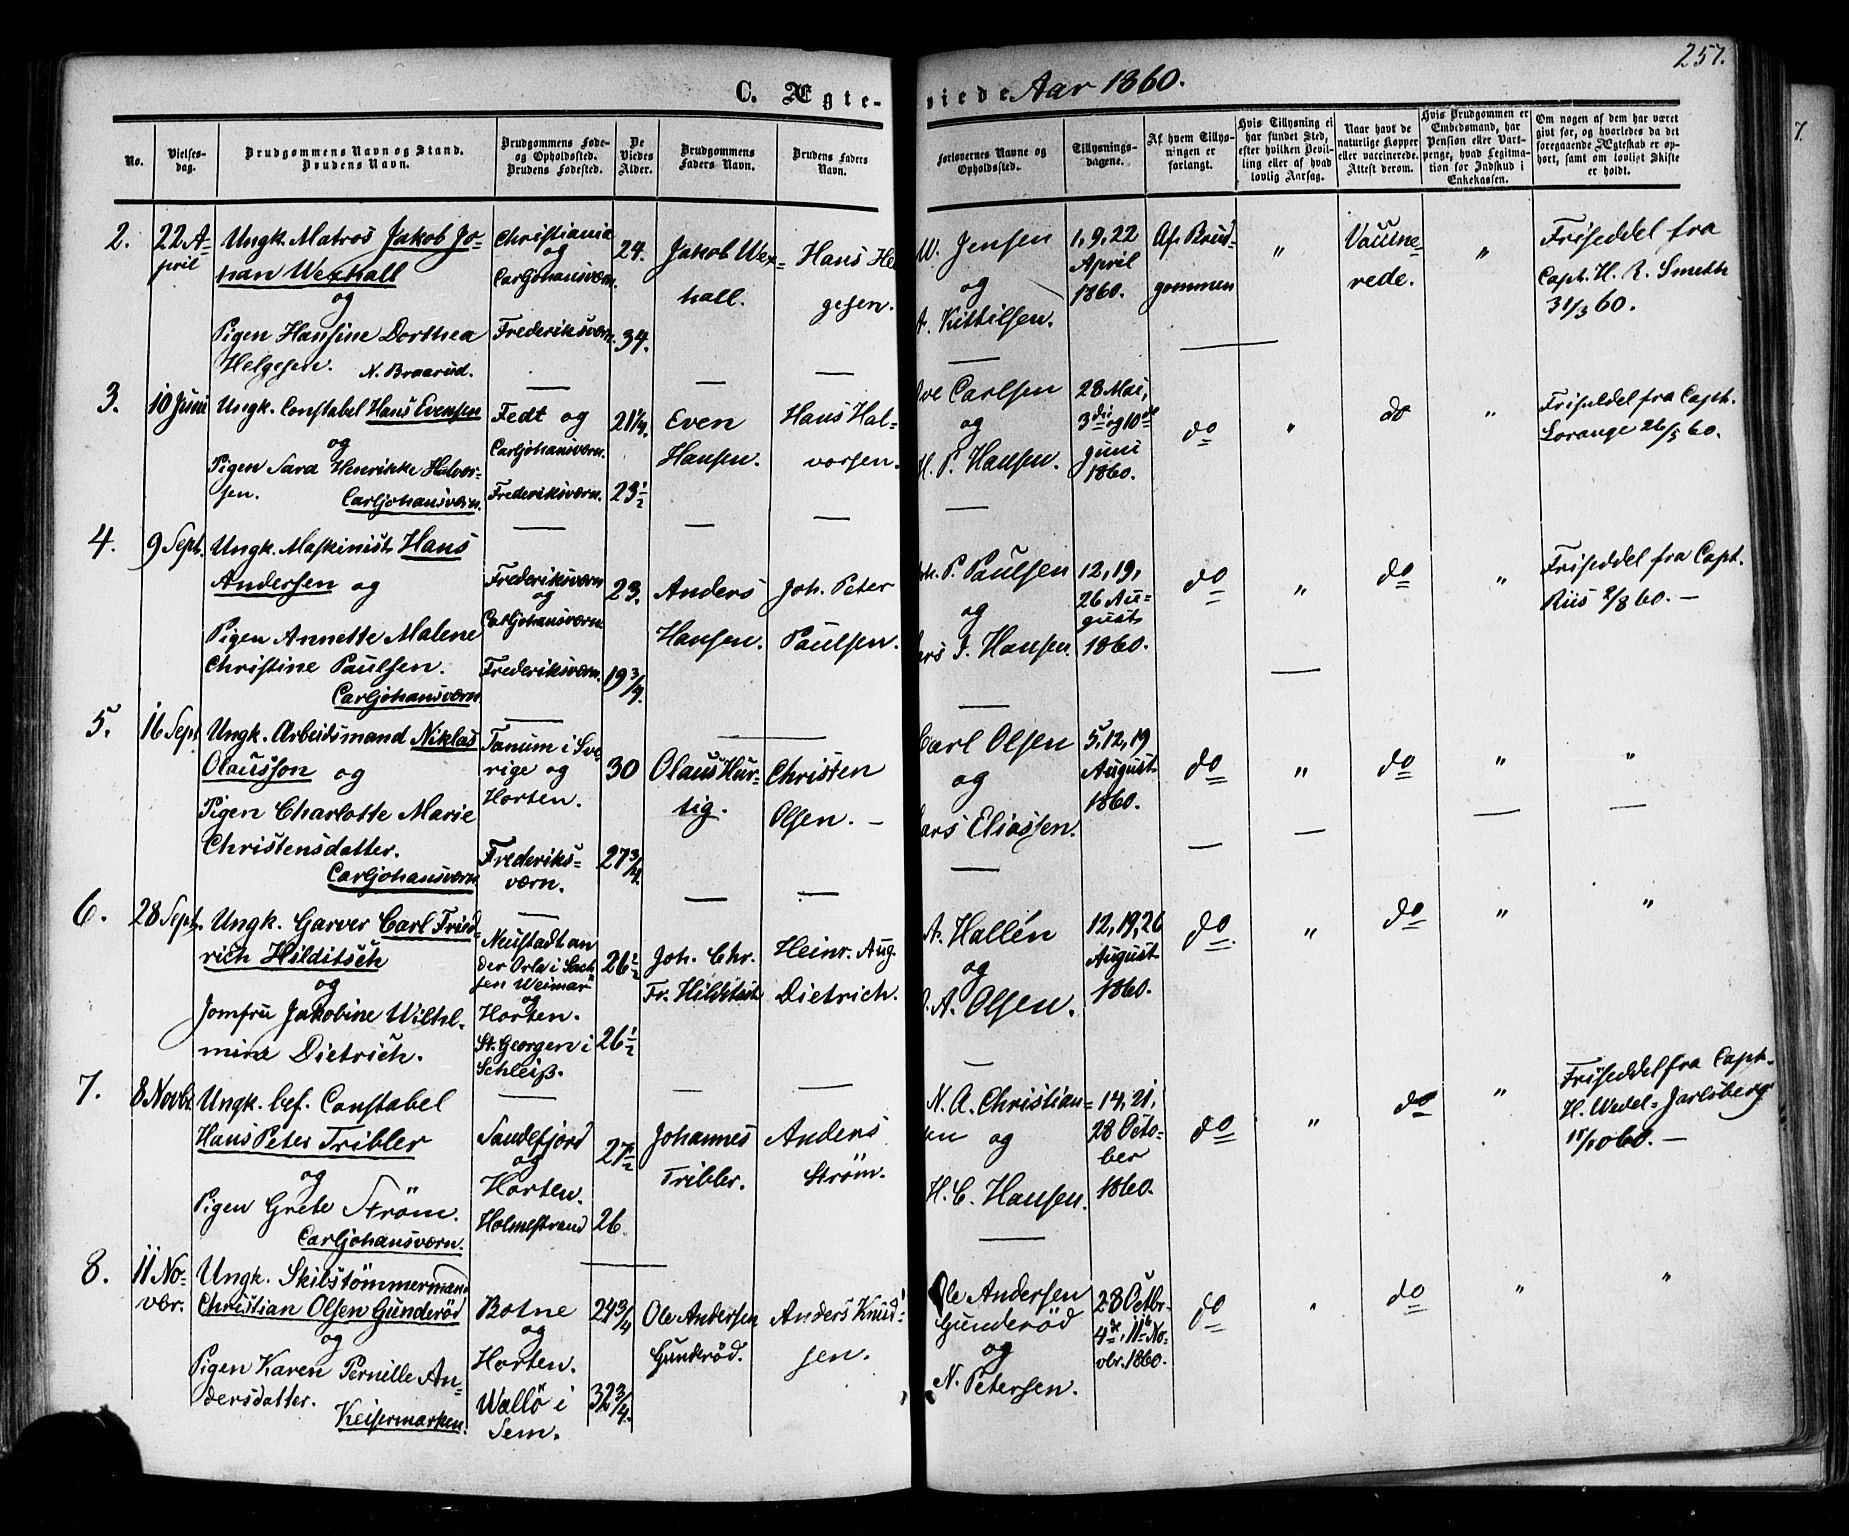 257.
C. Ægte-
viede Aar 1860.
No.
Vielses-
dag.
Brudgommens Navn og Stand.
Brudens Navn.
Brudgommens Føde-
og Opholdssted.
Brudens Fødested.
De
Viedes
Alder.
Brudgommens
Faders Navn.
Brudens Faders
Navn.
Forlovernes Navne og
Opholdssted.
Tillysnings-
dagene.
Af hvem Tillys-
ningen er
forlangt.
Hvis Tillysning ei
har fundet Sted,
efter hvilken Bevil-
ling eller af hvad
lovlig Aarsag.
Naar havt de
naturlige Kopper
eller vaccinerede.
Attest derom.
Hvis Brudgommen er
Embedsmand, har
Pension eller Vart-
penge, hvad Legitima-
tion for Indskud i
Enkekassen.
Om nogen af dem har været
gift før, og hvorledes da det
foregaaende Ægteskab er op-
hørt, samt om lovligt Skifte
er holdt.
2.
22 A-
pril
Ungk. Matros Jakob Jo-
han Wexhall
og
Pigen Hansine Dorthea
Helgesen. N. Braarud.
Christiania
og
Carljohansværn.
Frederiksværn.
24.
34.
Jakob Wex-
hall.
Hans Hel
gesen.
W. Jensen
og
A. Kittilsen.
1, 9, 22
April
1860.
Af Brud-
gommen
"
Vaccine-
rede.
"
Friseddel fra
Capt. H. R. Smeth
31/3 60.
3.
10 Juni
Ungk. Constabel Hans Evensen
og
Pigen Sara Henrikke Halvor-
sen. Carljohansværn.
Fedt og
Carljohansværn.
Frederiksværn.
21 1/4.
23 1/2
Even
Hansen.
Hans Hal-
vorsen.
Carlsen
og
H. P. Hansen.
28 Mai,
3die og 10de
Juni
1860.
do
"
do
"
Friseddel fra Capt.
Lorange 26/5 60.
4.
9 Sept.
Ungk. Maskinist Hans
Andersen og
Pigen Annette Malene
Christine Paulsen.
Carljohansværn
Frederiksværn
og
Carljohansværn
Frederiksværn.
23.
19 3/4.
Anders
Hansen.
Joh. Peter
Paulsen.
P. Paulsen
og
J. Hansen.
12, 19,
26 Au-
gust
1860.
do
"
do
"
Friseddel fra Capt.
Riis 2/8 60. —
5.
16 Sept
Ungk. Arbeidsmand Niklas
Olausson og
Pigen Charlotte Marie
Christensdatter.
Carljohansværn
Tanum i Sve-
rige og
Horten.
Frederiks-
værn.
30
27 3/4.
Olaus Hur-
tig.
Christen
Olsen. —
Carl Olsen
og
Lars Eliassen.
5, 12, 19
August
1860.
do
"
do
"
"
6.
28 Sept.
Ungk. Garver Carl Fried-
rich Hilditsch
og
Jomfru Jakobine Wilhel-
mine Dietrich.
Neustadt an
der Orla i Sach-
sen Weimar
og
Horten.
St. Georgen i
Schleiß.
26 1/2
26 1/2
Joh. Chr.
Fr. Hilditsch
Heinr. Aug.
Dietrich.
A. Hallén
og
A. Olsen.
12, 19, 26
August
1860.
do
"
do
"
"
7.
8 Novbr
Ungk. bef. Constabel
Hans Peter Tribler
og
Pigen Grete Strøm.
Carljohansværn.
Sandefjord
og
Horten.
Holmestrand
27 1/2
26
Johannes
Tribler.
Anders
Strøm.
N. A. Christian-
sen og
H. C. Hansen.
14, 21,
28 Octo-
ber
1860.
do
"
do
"
Friseddel fra Capt.
H. Wedel-Jarlsberg
11/10 60. —
8.
11 No-
vbr.
Ungk. Skibstömmermand
Christian Olsen Gunderöd
og
Pigen Karen Pernille An-
dersdatter. Keisermarken.
Botne
og
Horten.
Wallö i
Sem.
24 3/4
32 3/4.
Ole Andersen
Gunderöd.
Anders Knud-
sen.
Ole Andersen
Gunderöd
og
N. Petersen.
28 Octbr.
4de, 11te No-
vbr. 1860.
do
"
do
"
"
7.